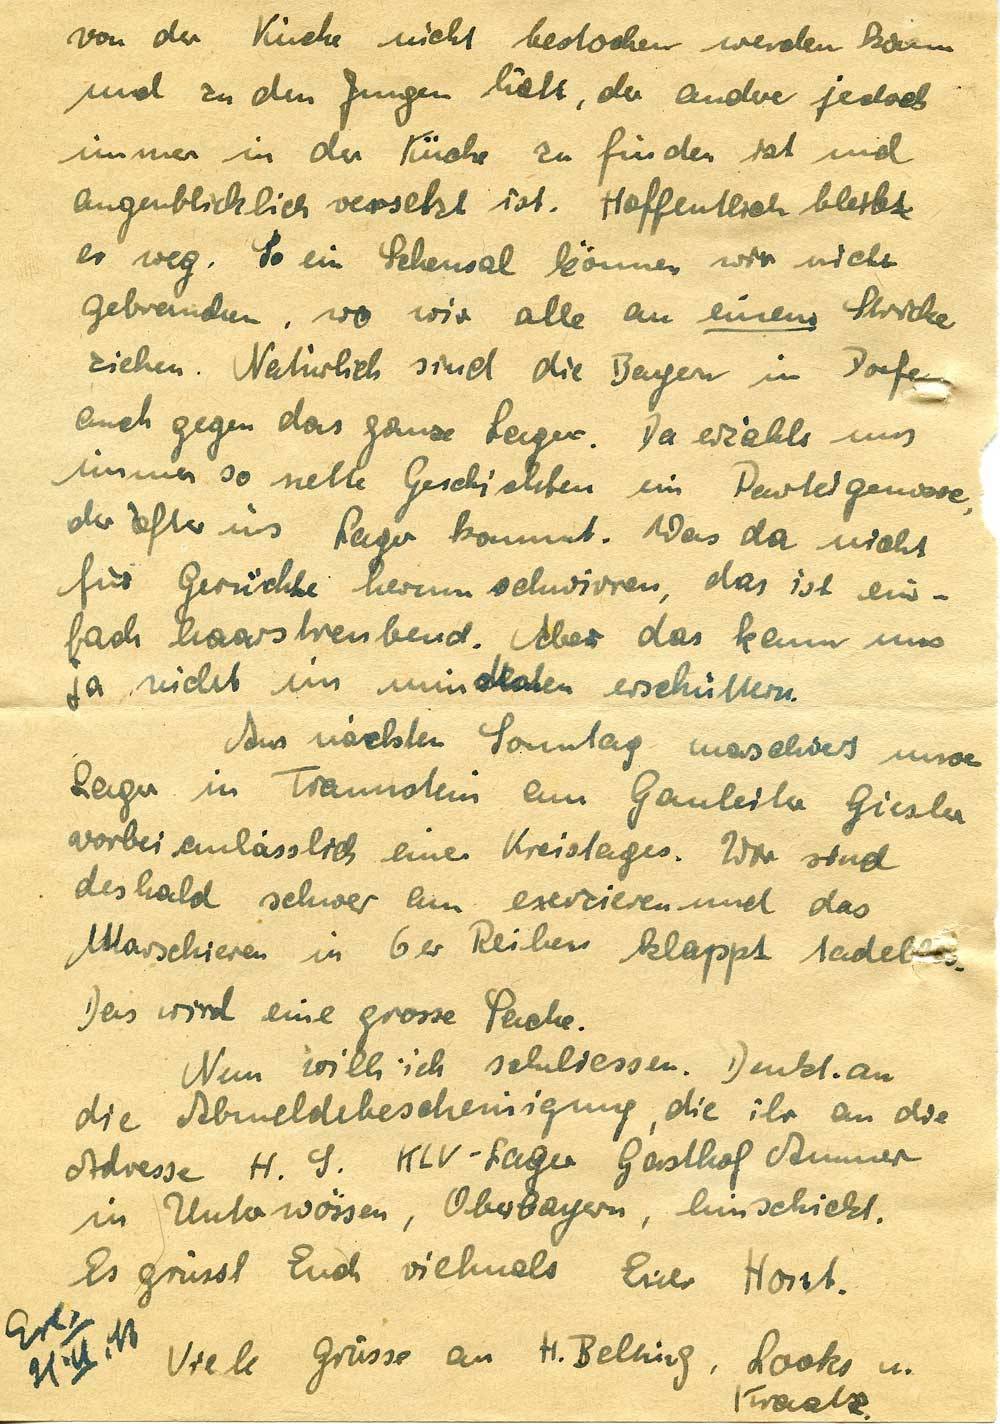 von der Küche nicht bestochen werden kann
und zu den Jungen hält, der andere jedoch
immer in der Küche zu finden ist und
augenblicklich versetzt ist. Hoffentlich bleibt
er weg. So ein Scheusal können wir nicht
gebrauchen, wo wir alle an einem Stricke
ziehen. Natürlich sind die Bayern in Dorfe
auch gegen das ganze Lager. Da erzählt uns
immer so nette Geschichten ein Parteigenosse,
der öfter ins Lager kommt. Was da nicht
für Gerüchte herumschwirren, das ist ein-
fach haarstreubend. Aber das kann uns
ja nicht im mindesten erschüttern.
Am nächsten Sonntag maschiert unser
Lager in Traunstein am Gauleiter Giesler
vorbei anlässlich eines Kreistages. Wir sind
deshalb schwer am exerzieren und das
Marschieren in 6er Reihen klappt tadellos.
Das wird eine grosse Sache.
Nun will ich schliessen. Denkt an
die Abmeldebescheinigung, die ihr an die
Adresse H. S. KLV-Lager Gasthof Ammer
in Unterwössen, Oberbayern, hinschickt.
Es grüsst Euch vielmals Euer Horst.
Erl.
Viele Grüsse an H. Belling, Looks u.
Kraatz.